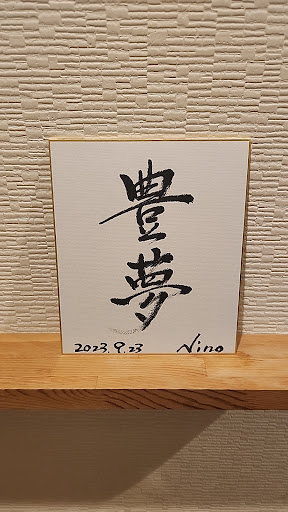 豊夢
2023.9.23 Nino